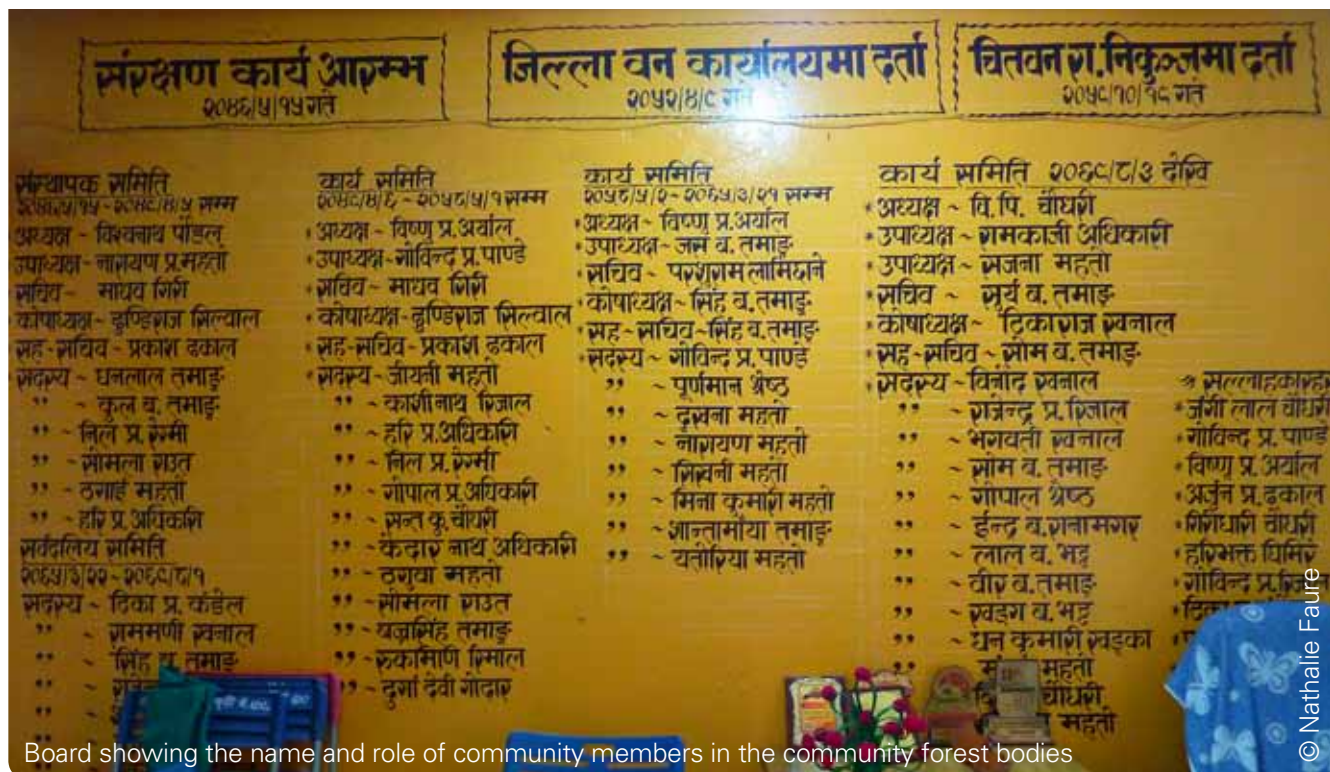 संरक्षण कार्य आरम्भ
२०४६/५/१५ गते
जिल्ला वन कार्यालयमा दर्ता
२०५२/४/९ गते
चितवन रा.निकुञ्जमा दर्ता
२०५८/१०/१८ गते
संस्थापक समिति
२०४६/५/१५ ~ २०४८/४/५ सम्म
अध्यक्ष ~ विश्वनाथ पौडेल
उपाध्यक्ष ~ नारायण प्र.महतो
सचिव ~ माधव गिरी
कोषाध्यक्ष ~ ढुण्डिराज सिल्वाल
सह-सचिव ~ प्रकाश ढकाल
सदस्य ~ धनलाल तमाङ
" ~ कुल ब. तमाङ
" ~ निल प्र. रेग्मी
" ~ सोमला राउत
" ~ ठगाई महतो
" ~ हरि प्र. अधिकारी
सर्वदलिय समिति
२०६५/३/२२ ~ २०६९/८/१
सदस्य ~ टिका प्र. कंडेल
" ~ राममणी खनाल
" ~ सिंह ब. तमाङ
"
"
कार्य समिति
२०४८/४/६ ~ २०५८/५/१ सम्म
अध्यक्ष ~ विष्णु प्र.अर्याल
उपाध्यक्ष ~ गोविन्द प्र.पाण्डे
सचिव ~ माधव गिरी
कोषाध्यक्ष ~ ढुण्डिराज सिल्वाल
सह-सचिव ~ प्रकाश ढकाल
सदस्य ~ जीयनी महतो
" ~ काशीनाथ रिजाल
" ~ हरि प्र.अधिकारी
" ~ निल प्र. रेग्मी
" ~ गोपाल प्र.अधिकारी
" ~ सन्त कु.चौधरी
" ~ केदार नाथ अधिकारी
" ~ ठगुवा महतो
" ~ सोमला राउत
" ~ बज्रसिंह तमाङ
" ~ रुकामणि रिमाल
" ~ दुर्गा देवी गोदार
कार्य समिति
२०५८/५/२ ~ २०६५/३/२१ सम्म
अध्यक्ष ~ विष्णु प्र.अर्याल
उपाध्यक्ष ~ जस ब. तमाङ
सचिव ~ परशुराम लामिछाने
कोषाध्यक्ष ~ सिंह ब.तमाङ
सह-सचिव ~ सिंह ब.तमाङ
सदस्य ~ गोविन्द प्र. पाण्डे
" ~ पूर्णमान श्रेष्ठ
" ~ दुखना महतो
" ~ नारायण महतो
" ~ सिखनी महतो
" ~ मिना कुमारी महतो
" ~ शान्तामाया तमाङ
" ~ यतोरिया महतो
कार्य समिति २०६९/८/३ देखि
अध्यक्ष ~ वि.पि. चौधरी
उपाध्यक्ष ~ रामकाजी अधिकारी
उपाध्यक्ष ~ सजना महतो
सचिव ~ सूर्य ब. तमाङ
कोषाध्यक्ष ~ टिकाराज खनाल
सह-सचिव ~ सोम ब. तमाङ
सदस्य ~ विनोद खनाल
" ~ राजेन्द्र प्र.रिजाल
" ~ भगवती खनाल
" ~ सोम ब. तमाङ
" ~ गोपाल श्रेष्ठ
" ~ ईन्द्र ब.रानामगर
" ~ लाल ब. भट्ट
" ~ वीर ब.तमाङ
" ~ खड्ग ब. भट्ट
" ~ धन कुमारी खड्का
" महतो
चौधरी
महतो
जंगी लाल चौधरी
गोविन्द प्र. पाण्डे
विष्णु प्र. अर्याल
अर्जुन प्र. ढकाल
गिरीधारी चौधरी
हरिभक्त घिमिरे
गोविन्द प्र.रिजाल
Board showing the name and role of community members in the community forest bodies
© Nathalie Faure